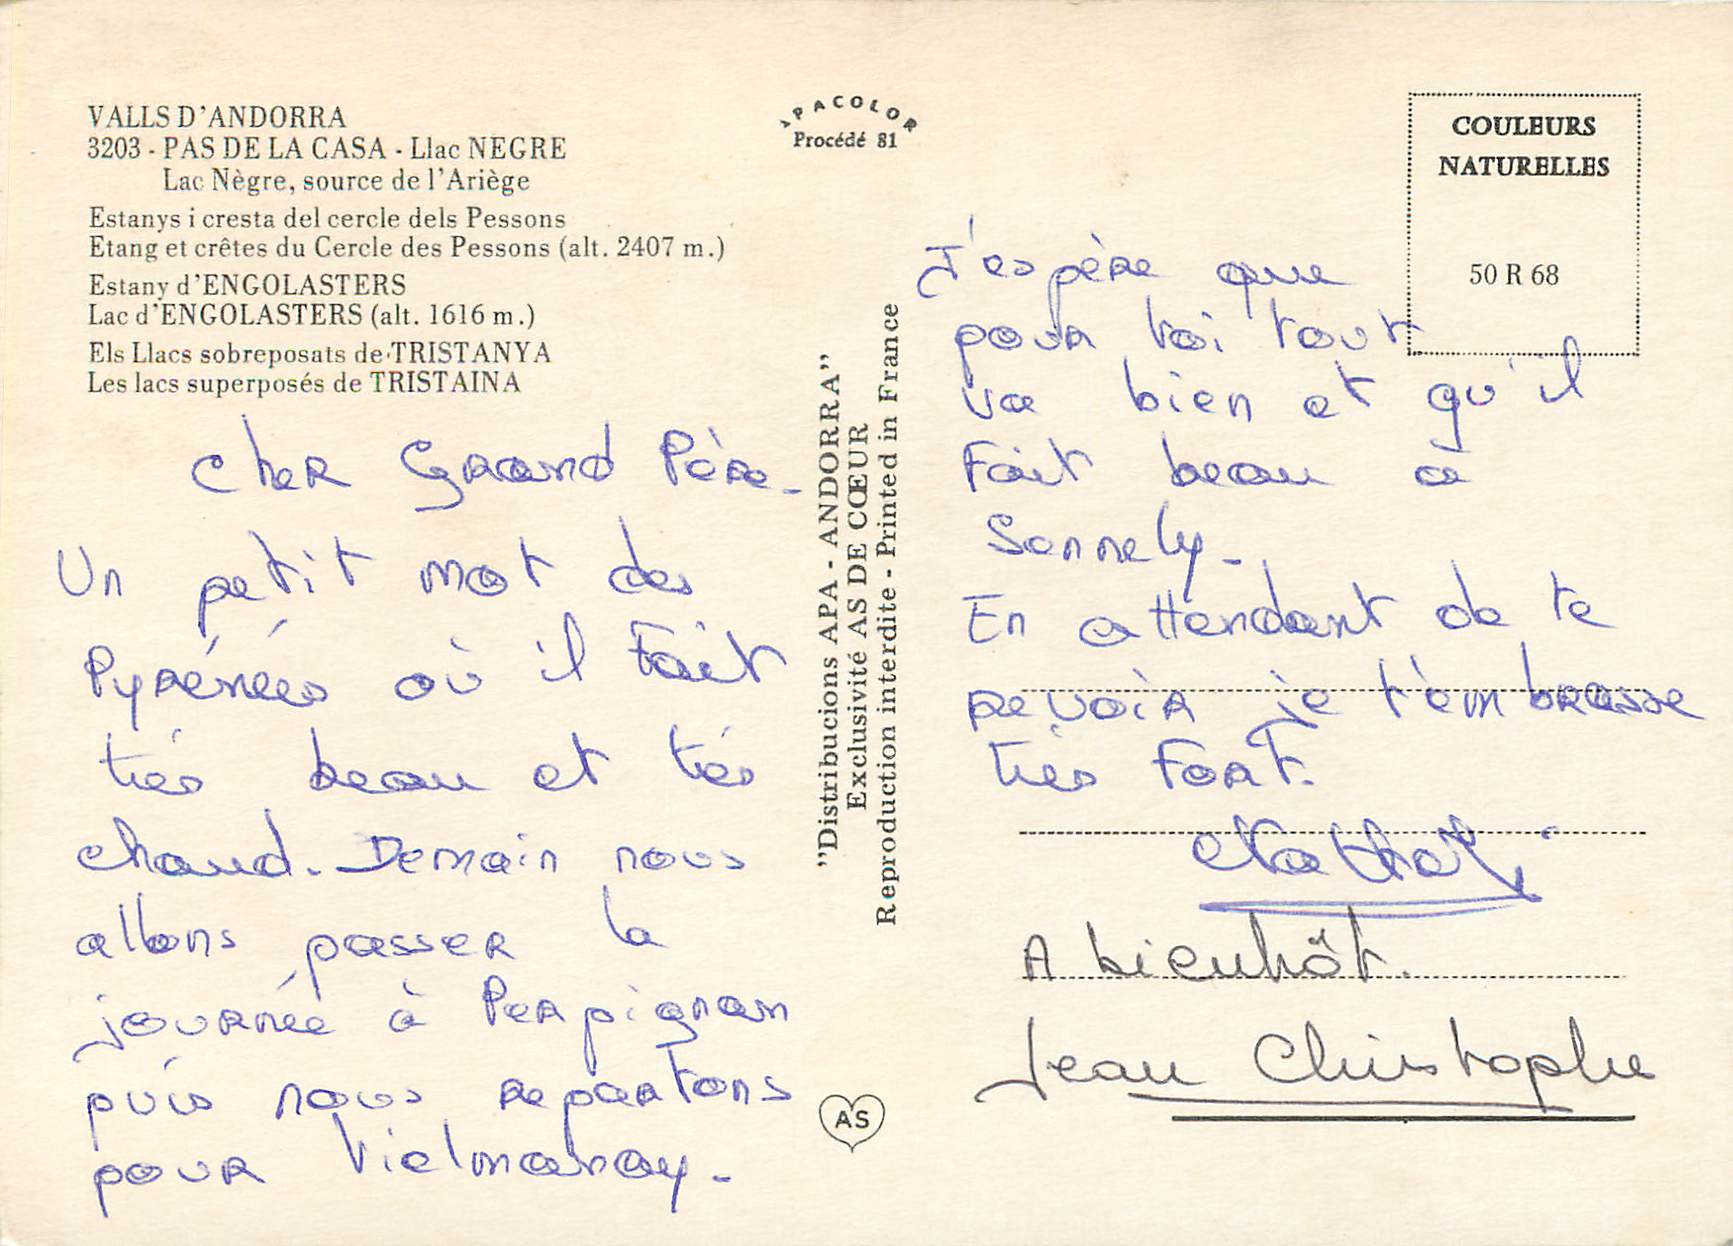 VALLS D'ANDORRA
3203 - PAS DE LA CASA - Llac NEGRE
Lac Nègre, source de l'Ariège
Estanys i cresta del cercle dels Pessons
Etang et crêtes du Cercle des Pessons (alt. 2407 m.)
Estany d'ENGOLASTERS
Lac d'ENGOLASTERS (alt. 1616 m.)
Els Llacs sobreposats de TRISTANYA
Les lacs superposés de TRISTAINA
Cher Grand Père -
Un petit mot des
Pyrénées où il Fait
très beau et très
chaud. Demain nous
allons passer la
journée à Perpignan
puis nous repartons
pour Vielmanay -
APACOLOR
Procédé 81
"Distribucions APA - ANDORRA"
Exclusivité AS DE CŒUR
Reproduction interdite - Printed in France
AS
COULEURS
NATURELLES
50 R 68
J'espère que
pour toi tout
va bien et qu'il
Fait beau à
Sennely -
En attendant de te
revoir je t'embrasse
très Fort.
Nathali
A bientôt.
Jean Christophe